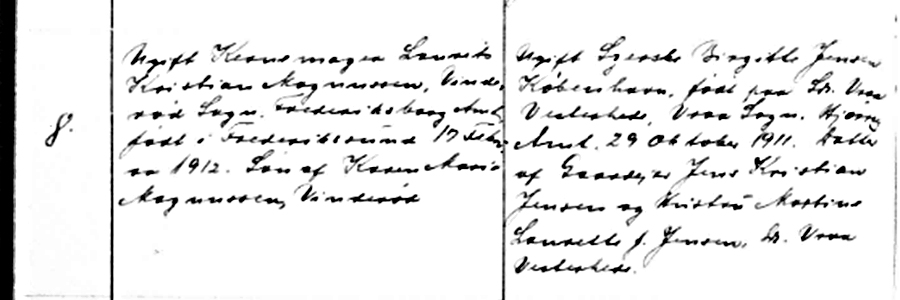 8.
Ugift Kranemager Laurits
Kristian Magnussen, Vinde-
rød Sogn, Frederiksborg Amt,
født i Frederikssund 17 Febru-
ar 1912. Søn af Karen Marie
Magnussen, Vinderød
Ugift Syerske Birgitte Jensen
København, født paa Sdr. Vraa
Vesterhede, Vraa Sogn, Hjørring
Amt, 29 Oktober 1911. Datter
af Gaardejer Jens Kristian
Jensen og Hustru Martine
Laurette f. Jensen, Sdr. Vraa
Vesterhede.